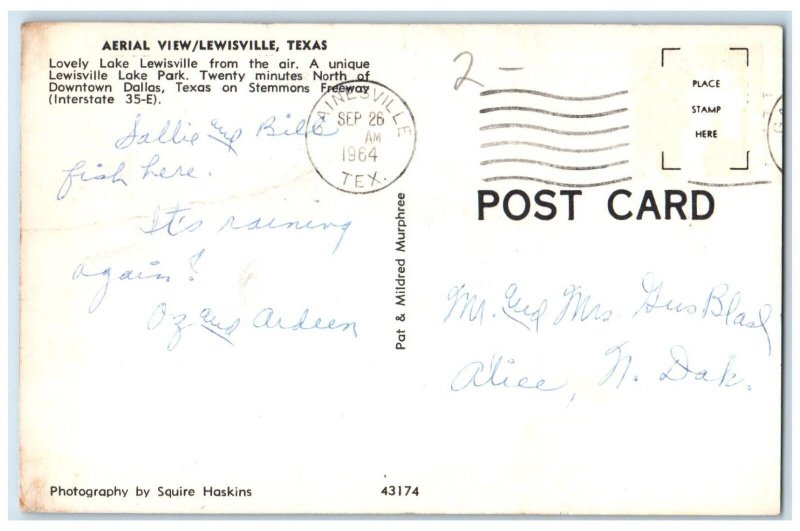 AERIAL VIEW/LEWISVILLE, TEXAS
Lovely Lake Lewisville from the air. A unique
Lewisville Lake Park. Twenty minutes North of
Downtown Dallas, Texas on Stemmons Freeway
(Interstate 35-E).
Sallie and Bill
fish here.
It's raining
again!
Oz and Ardeen
AINESVILLE
SEP 26
AM
1964
TEX.
2 -
PLACE
STAMP
HERE
POST CARD
Pat & Mildred Murphree
Mr. and Mrs. Gus Blasl
Alice, N. Dak.
Photography by Squire Haskins
43174